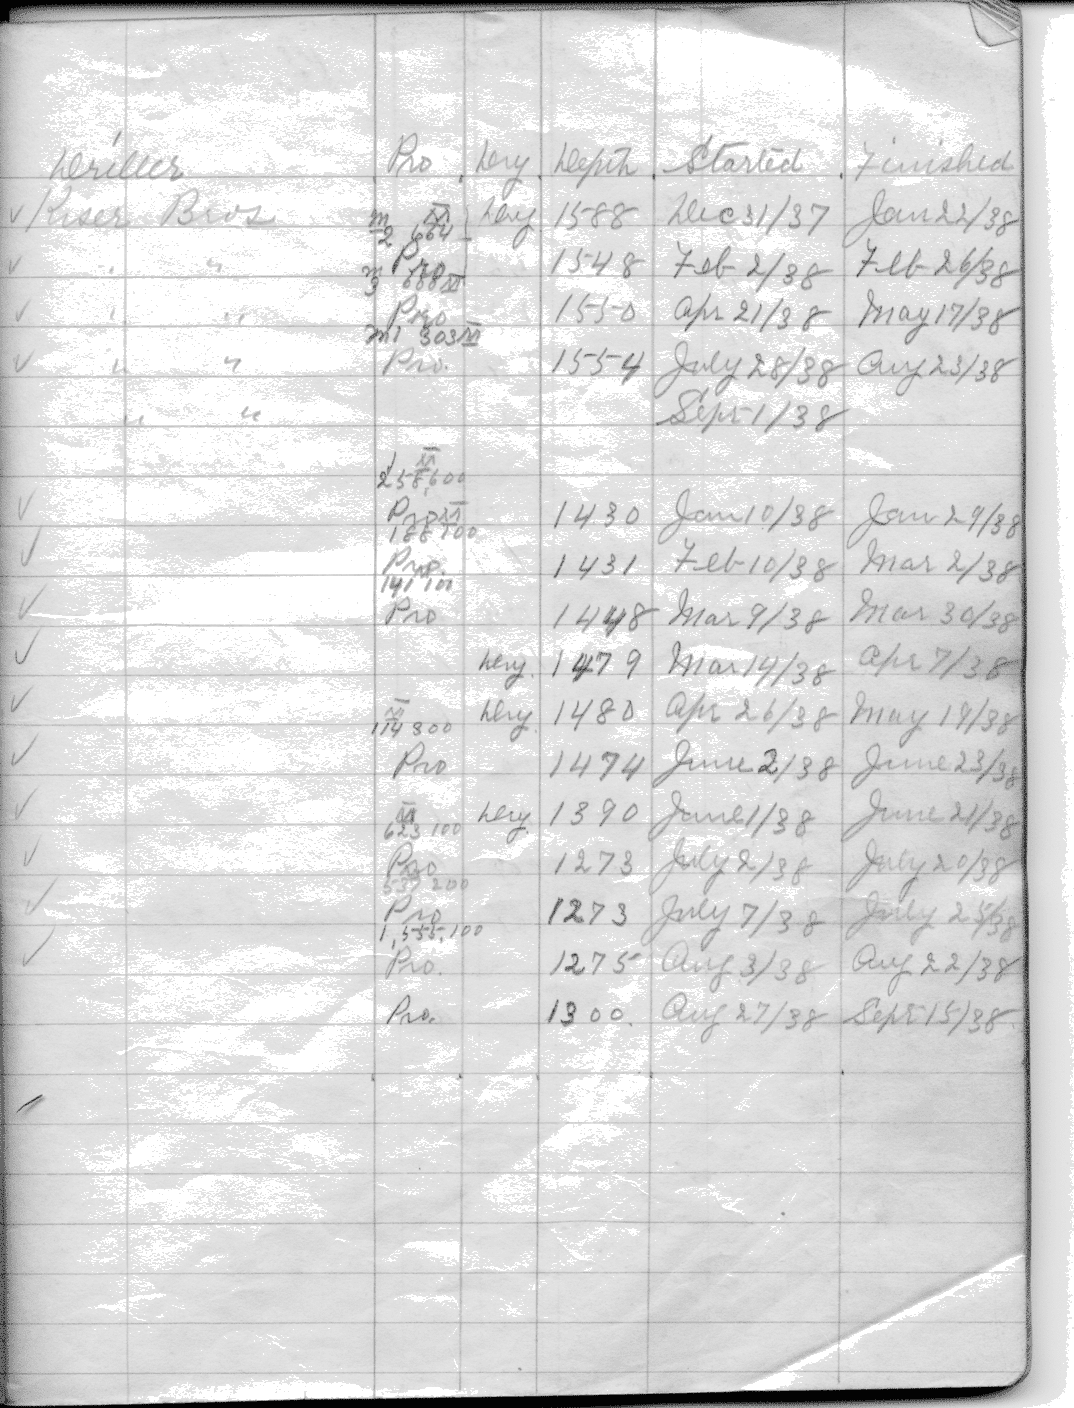 Driller Pro Dry Depth Started Finished
✓ Kiser Bros Dry 1588 Dec 31/37 Jan 22/38
M 2 664
✓ " " Pro 1548 Feb 2/38 Feb 26/38
M 3 688 M
✓ " " Pro 1550 Apr 21/38 May 17/38
M1 303 M
✓ " " Pro. 1554 July 28/38 Aug 23/38
" " Sept 1/38
M
258,600
✓ Pro 1430 Jan 10/38 Jan 29/38
188 700
✓ Pro. 1431 Feb 10/38 Mar 2/38
141 100
✓ Pro 1448 Mar 9/38 Mar 30/38
✓ Dry. 1479 Mar 14/38 Apr 7/38
✓ Dry. 1480 Apr 26/38 May 19/38
M
114 800
✓ Pro 1474 June 2/38 June 23/38
✓ Dry. 1390 June 1/38 June 21/38
M
623 100
✓ Pro 1273 July 2/38 July 20/38
200
✓ Pro 1273 July 7/38 July 25/38
1,555,100
✓ Pro. 1275 Aug 3/38 Aug 22/38
Pro. 1300. Aug 27/38 Sept 15/38.